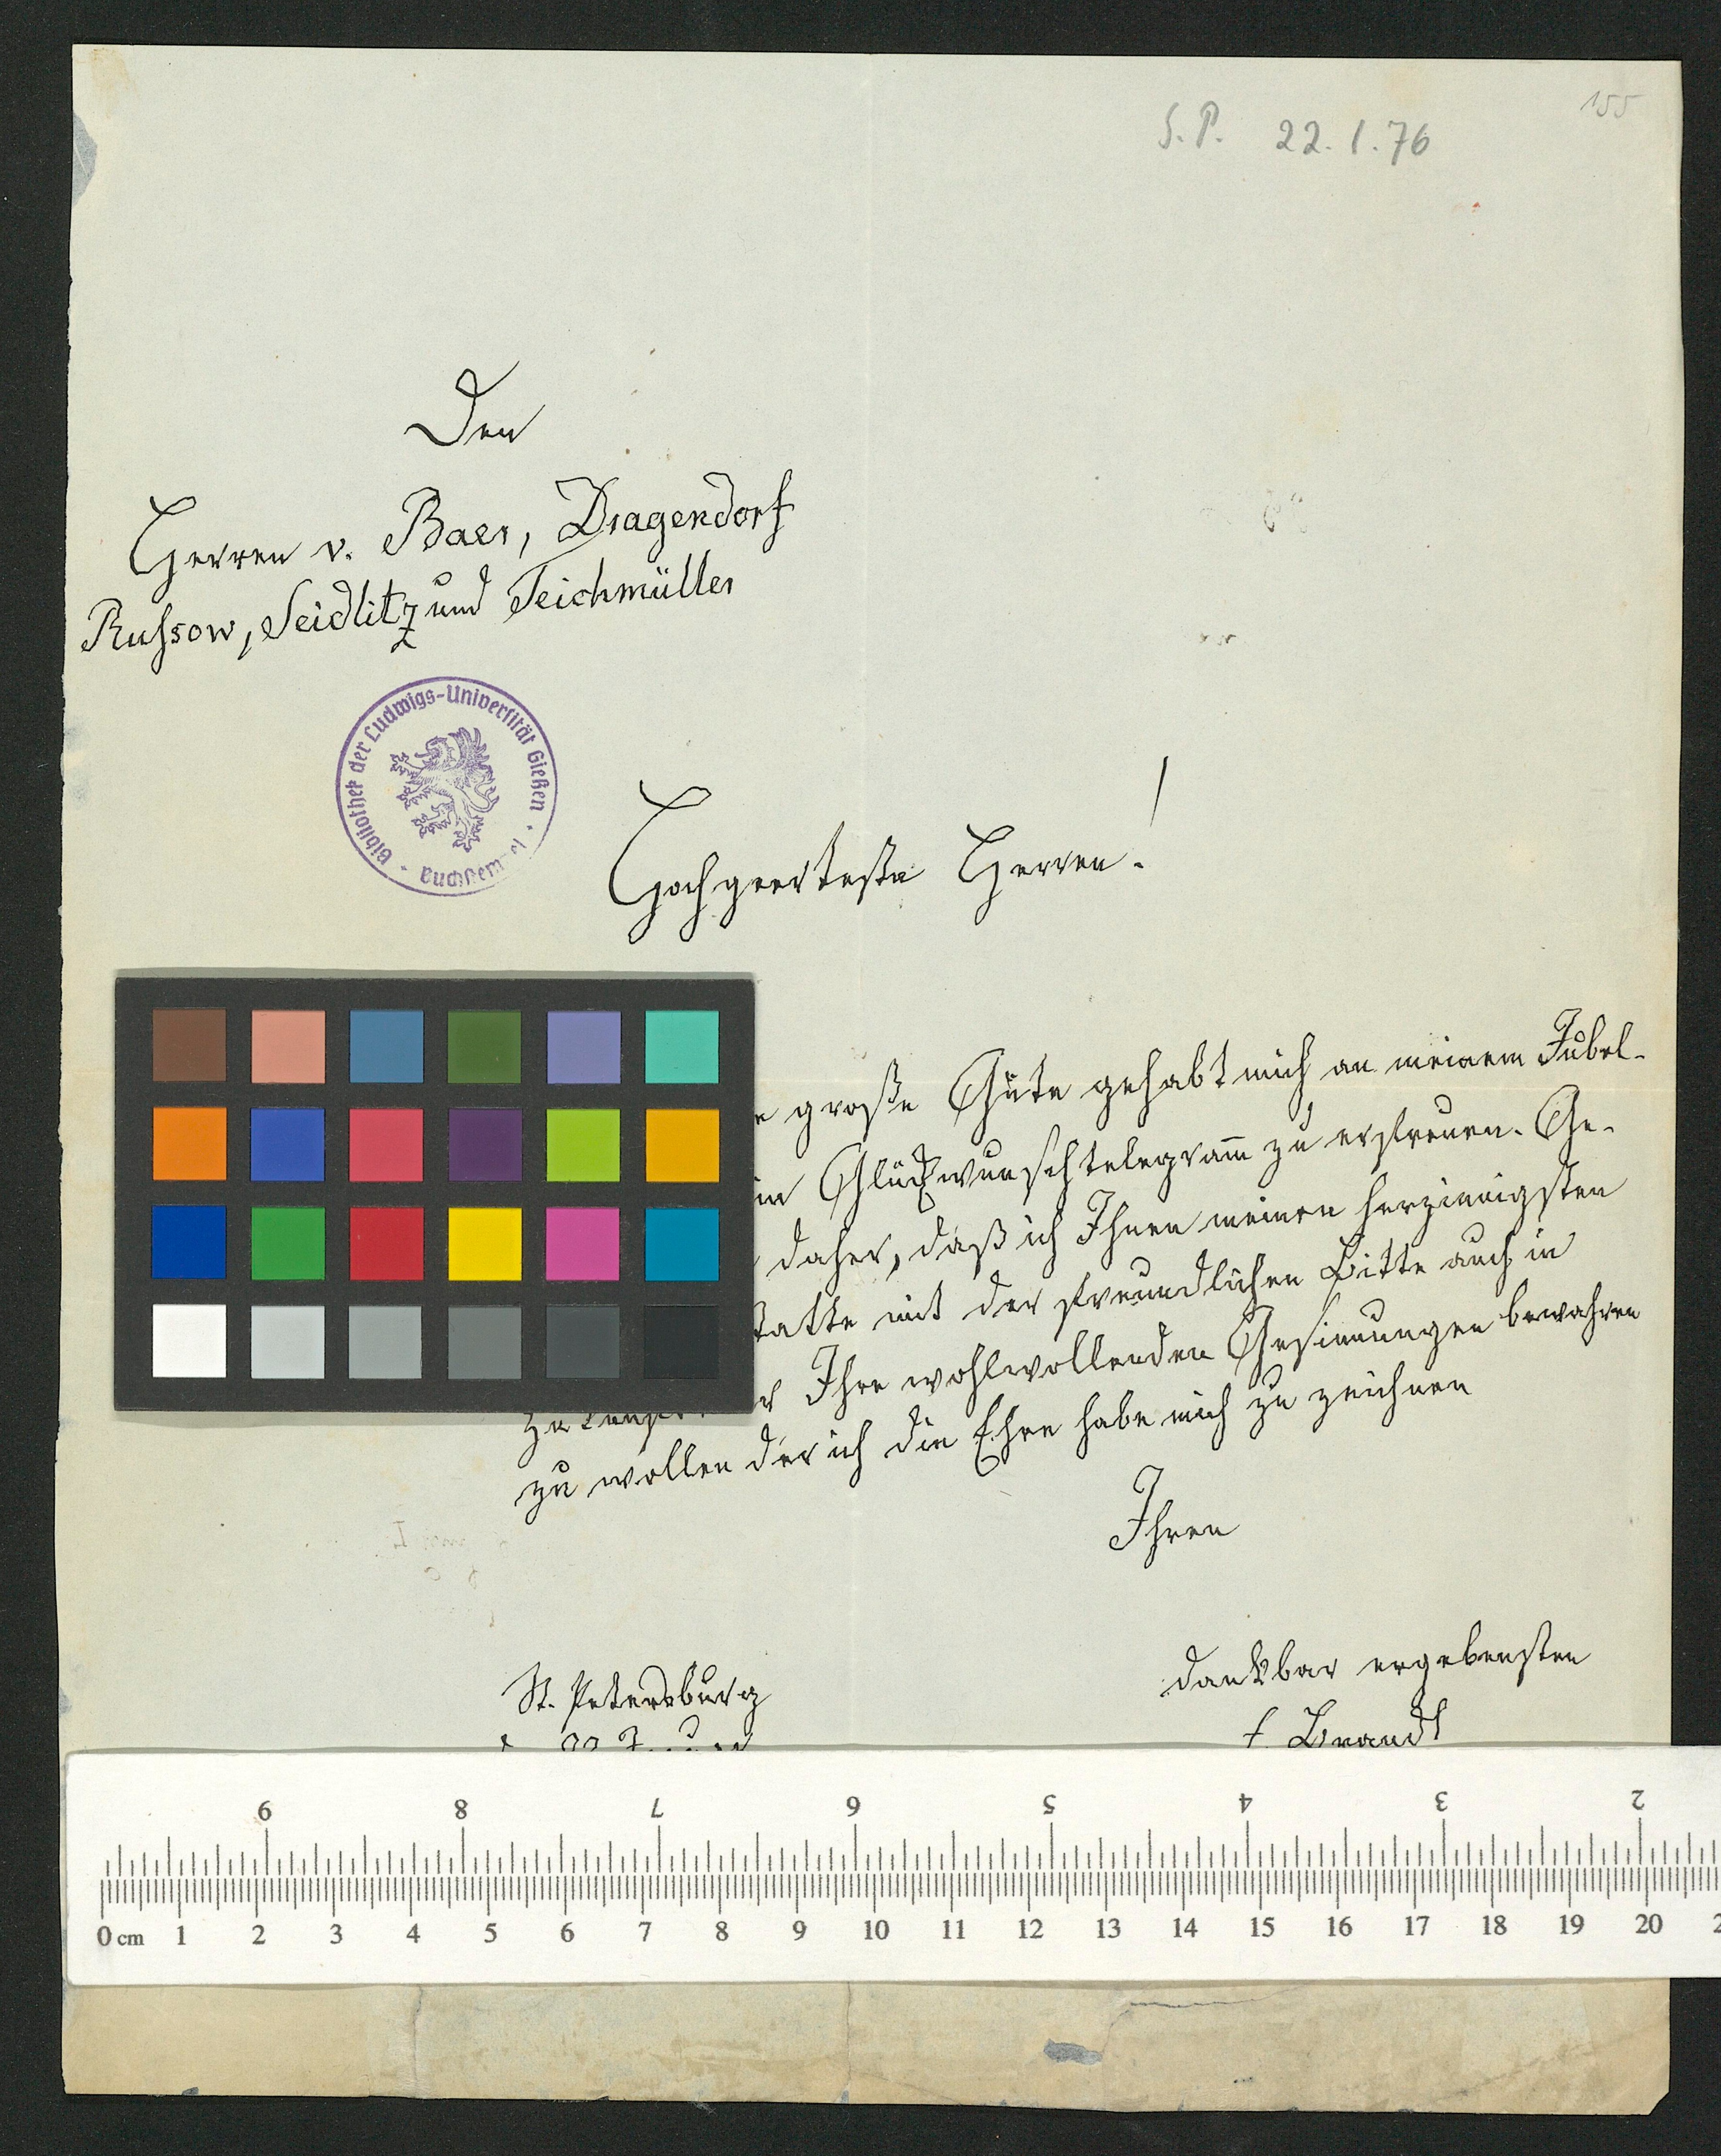 155
S.P. 22.1.76
Den
Herren v. Baer, Dragendorf
Russow, Seidlitz und Teichmüller
Bibliothek der Ludwigs-Universität Gießen
Hochgeerteste Herren!
große Güte gehabt mich an meinem Jubel-
Glückwunschtelegram̅ zu erfreuen. Ge-
daher, daß ich Ihnen meinen herzinnigsten
mit der freundlichen Bitte auch in
Ihre wohlwollenden Gesinnungen bewahren
zu wollen der ich die Ehre habe mich zu zeichnen
Ihren
dankbar ergebensten
St. Petersburg
f. Brandt
9 8 7 6 5 4 3 2
0 cm 1 2 3 4 5 6 7 8 9 10 11 12 13 14 15 16 17 18 19 20